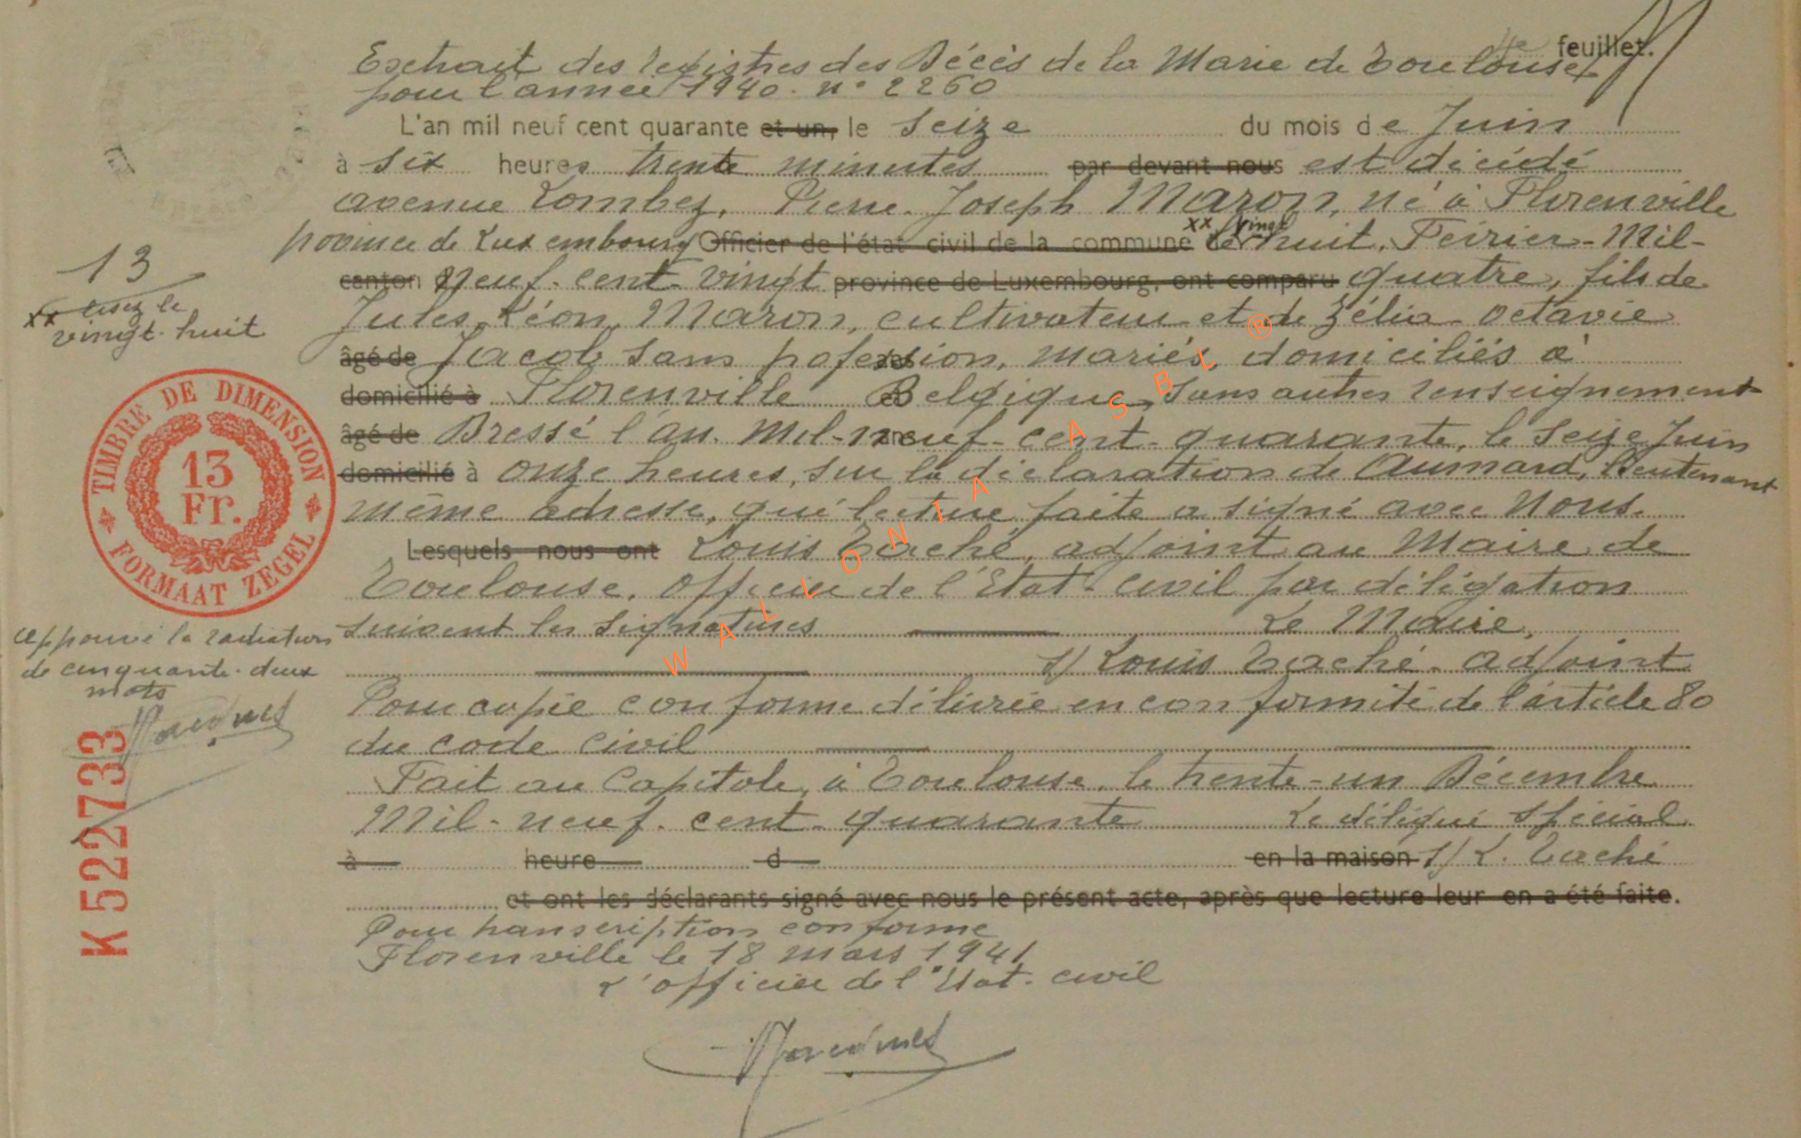 4e feuillet.
Extrait des registres des Décès de la Marie de Toulouse
pour l'année 1940. n° 2260
L'an mil neuf cent quarante et un, le seize du mois de Juin
à six heures trente minutes par devant nous est décédé
avenue Lombez, Pierre. Joseph Maron, né à Florenville
province de Luxembourg Officier de l'état civil de la commune xx le vingt huit. Février - Mil -
canton Neuf. cent. vingt province de Luxembourg, ont comparu quatre, fils de
Jules, Léon, Maron, cultivateur et de Zélia Octavie
âgé de Jacob sans profession, mariés, domiciliés à
domicilié à Florenville Belgique, sans autres renseignement
âgé de Dressé l'an. mil-neuf-cent-quarante, le seize Juin
domicilié à onze heures, sur la déclaration de Aumard, lieutenant
même adresse, qui lecture faite a signé avec Nous.
Lesquels nous ont Louis Taché, adjoint au Maire de
Toulouse. officier de l'Etat-civil par délégation
suivent les signatures Le Maire,
s/ Louis Taché. adjoint
Pour copie conforme délivrée en conformité de l'article 80
du code civil
Fait au Capitole, à Toulouse. le trente-un Décembre
Mil-neuf.cent-quarante Le délégué spécial
à heure d en la maison s/ L. Taché
et ont les déclarants signé avec nous le présent acte, après que lecture leur en a été faite.
Pour transcription conforme
Florenville le 18 mars 1941
L'officier de l'Etat-civil
13
xx lisez le
vingt-huit
TIMBRE DE DIMENSION
13
Fr.
FORMAAT ZEGEL
approuvé la radiation
de cinquante-deux
mots
K 522733
WALLONIA ASBL ®